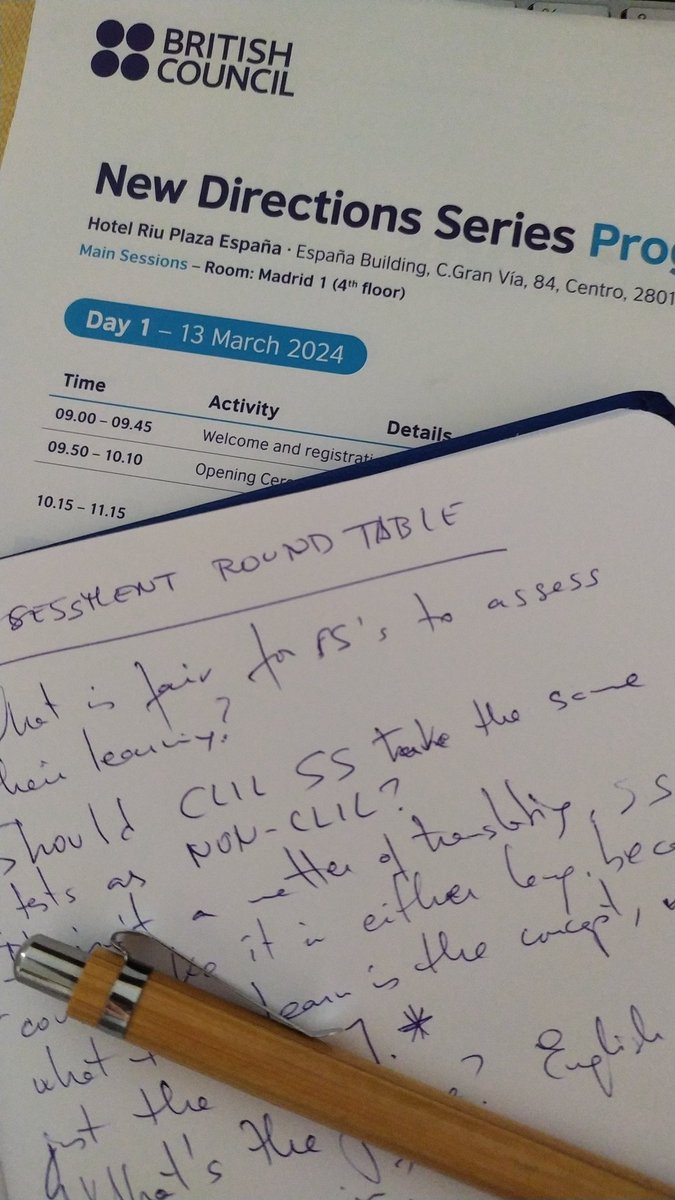 BRITISH
COUNCIL
New Directions Series Prog
Hotel Riu Plaza España · España Building, C.Gran Vía, 84, Centro, 2801
Main Sessions – Room: Madrid 1 (4th floor)
Day 1 – 13 March 2024
Time Activity Details
09.00 – 09.45 Welcome and registrati
09.50 – 10.10 Opening Cer
10.15 – 11.15
SESSMENT ROUND TABLE
hat is fair for SS's to assess
heir learning?
Should CLIL SS take the same
tests as NON-CLIL?
a matter of translating, SS
it in either lang. beca
learn is the concept,
what
just the *
What's the ? English